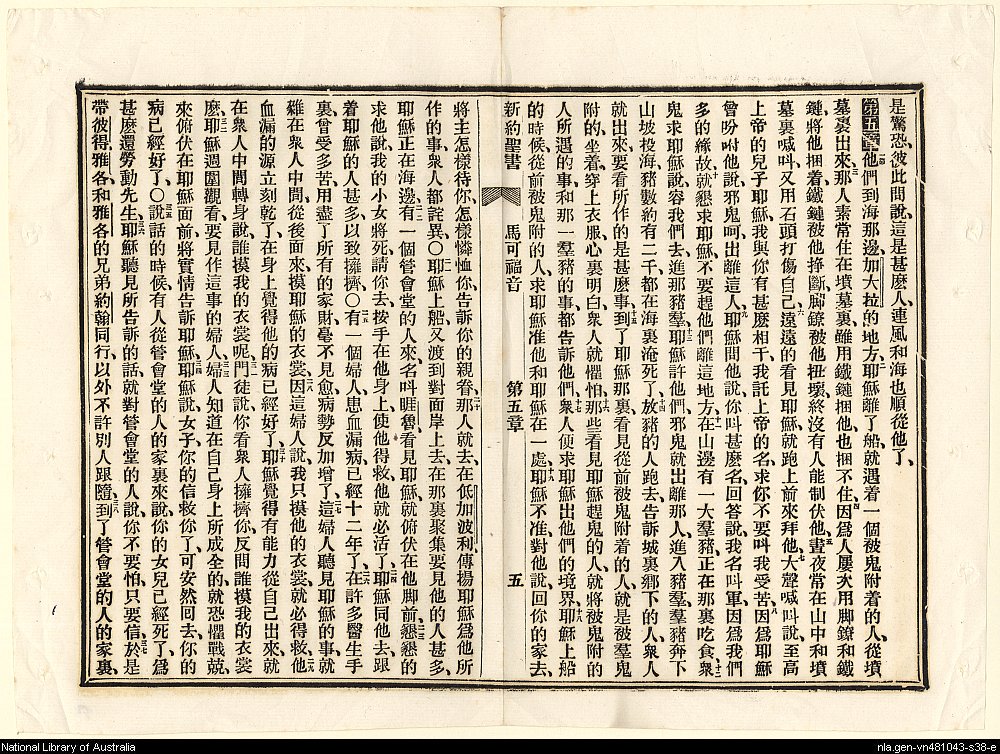 是驚恐、彼此問說、這是甚麼人、連風和海也順從他了、
第五章他們到海那邊、加大拉的地方、耶穌離了船、就遇着一個被鬼附着的人、從墳
墓裏出來、那人素常住在墳墓裏、雖用鐵鏈捆他、也捆不住、因爲人屢次用脚鐐和鐵
鏈、將他捆着、鐵鏈被他掙斷、脚鐐被他扭壞、終沒有人能制伏他、晝夜常在山中和墳
墓裏喊叫、又用石頭打傷自己、遠遠的看見耶穌、就跑上前來拜他、大聲喊叫說、至高
上帝的兒子耶穌、我與你有甚麼相干、我託上帝的名求你、不要叫我受苦、因爲耶穌
曾吩咐他說、邪鬼呵、出離這人、耶穌問他說、你叫甚麼名、回答說、我名叫軍、因爲我們
多的緣故、就懇求耶穌、不要趕他們離這地方、在山邊有一大羣豬、正在那裏吃食、衆
鬼求耶穌說、容我們去進那豬羣、耶穌許他們、邪鬼就出離那人、進入豬羣、羣豬奔下
山坡、投海、豬數約有二千、都在海裏淹死了、放豬的人跑去、告訴城裏鄉下的人、衆人
就出來、要看所作的是甚麼事、到了耶穌那裏、看見從前被鬼附着的人、就是被羣鬼
附的、坐着、穿上衣服、心裏明白、衆人就懼怕、那些看見耶穌趕鬼的人、就將被鬼附的
人所遇的事、和那一羣豬的事、都告訴他們、衆人便求耶穌出他們的境界、耶穌上船
的時候、從前被鬼附的人、求耶穌准他和耶穌在一處、耶穌不准、對他說、回你的家去、
新約聖書 馬可福音 第五章 五
將主怎樣待你、怎樣憐恤你、告訴你的親眷、那人就去、在低加波利傳揚耶穌爲他所
作的事、衆人都詫異○耶穌上船、又渡到對面岸上去、在那裏聚集要見他的人甚多、
耶穌正在海邊、有一個管會堂的人來、名叫睚魯、看見耶穌、就俯伏在他脚前、懇懇的
求他說、我的小女將死、請你去按手在他身上、使他得救、他就必活了、耶穌同他去、跟
着耶穌的人甚多、以致擁擠、○有一個婦人、患血漏病、已經十二年了、在許多醫生手
裏、曾受多苦、用盡了所有的家財、毫不見愈、病勢反加增了、這婦人聽見耶穌的事、就
雜在衆人中間、從後面來、摸耶穌的衣裳、因這婦人說、我只摸他的衣裳、就必得救、他
血漏的源、立刻乾了、在身上覺得他的病已經好了、耶穌覺得有能力從自己出來、就
在衆人中間轉身說、誰摸我的衣裳呢、門徒說、你看衆人擁擠你、反問誰摸我的衣裳
麼、耶穌週圍觀看、要見作這事的婦人、婦人知道在自己身上所成全的、就恐懼戰兢、
來俯伏在耶穌面前、將實情告訴耶穌、耶穌說、女子、你的信救你了、可安然回去、你的
病已經好了、○說話的時候、有人從管會堂的人的家裏來、說、你的女兒已經死了、爲
甚麼還勞動先生、耶穌聽見所告訴的話、就對管會堂的人說、你不要怕、只要信、於是
帶彼得、雅各、和雅各的兄弟約翰同行、以外不許別人跟隨、到了管會堂的人的家裏、
National Library of Australia
nla.gen-vn481043-s38-e